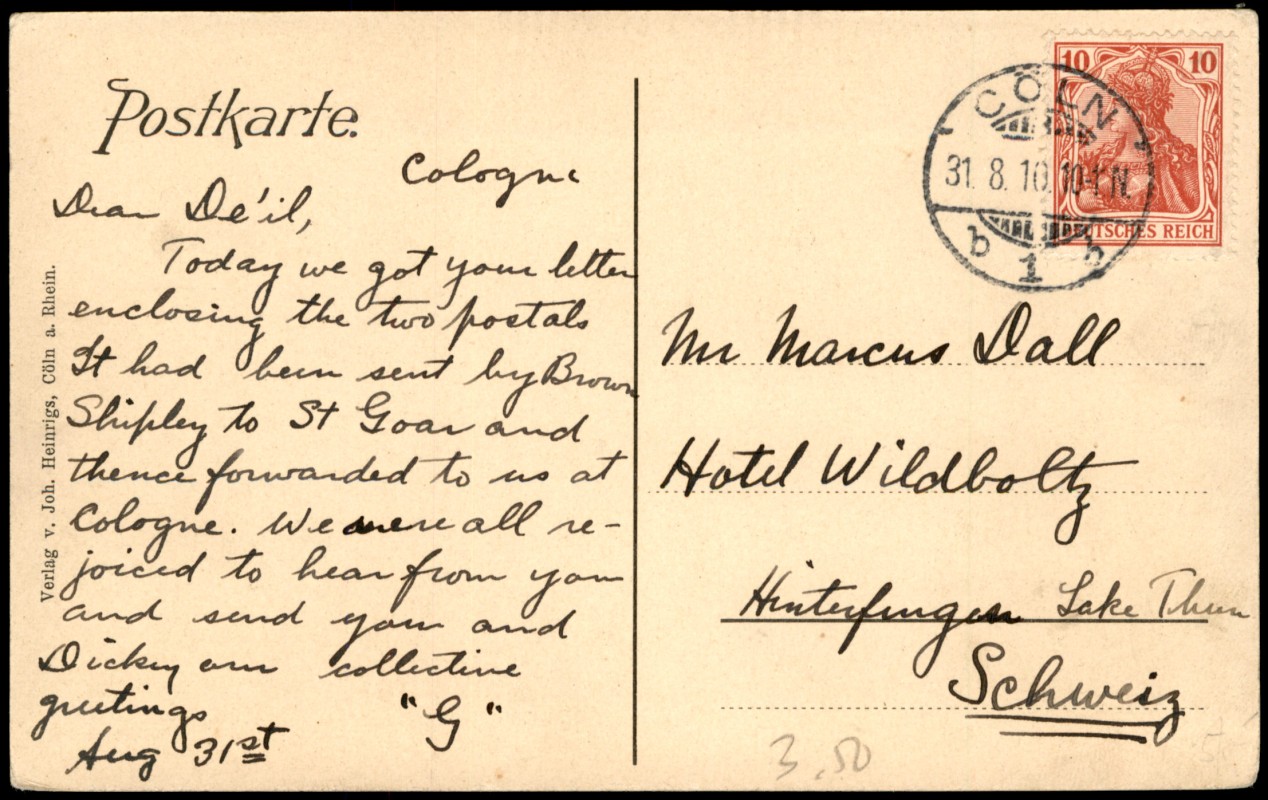 Postkarte.
Cologne
Dear De'il,
Today we got your letter
enclosing the two postals
It had been sent by Brown
Shipley to St Goar and
thence forwarded to us at
Cologne. We were all re-
joiced to hear from you
and send you and
Dickey our collective
greetings
"G"
Aug 31st
Verlag v. Joh. Heinrigs, Cöln a. Rhein.
10 10
DEUTSCHES REICH
CÖLN
31. 8. 10. 10-11 N.
b 1 b
Mr Marcus Dall
Hotel Wildboltz
Hinterfingen Lake Thun
Schweiz
3.50